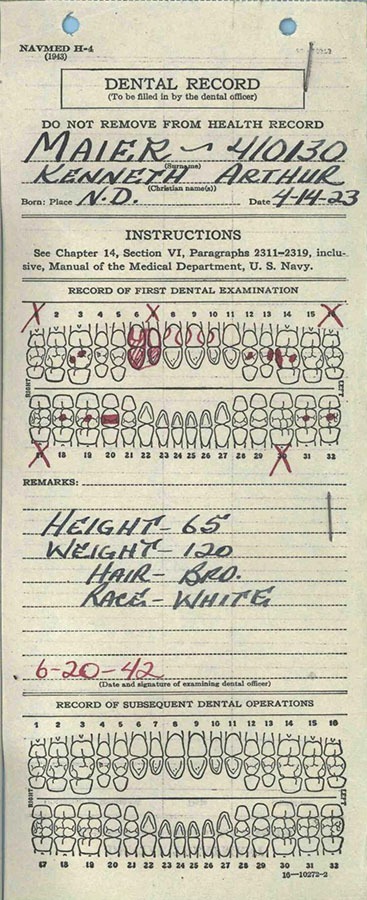 NAVMED H-4
(1943)
DENTAL RECORD
(To be filled in by the dental officer)
DO NOT REMOVE FROM HEALTH RECORD
MAIER - 410130
(Surname)
KENNETH ARTHUR
(Christian name(s))
Born: Place N.D. Date 4-14-23
INSTRUCTIONS
See Chapter 14, Section VI, Paragraphs 2311-2319, inclu-
sive, Manual of the Medical Department, U. S. Navy.
RECORD OF FIRST DENTAL EXAMINATION
X 2 3 4 5 6 X 8 9 10 11 12 13 14 15 X
RIGHT LEFT
X 18 19 20 21 22 23 24 25 26 27 28 29 X 31 32
REMARKS:
HEIGHT- 65
WEIGHT- 120
HAIR- BRO.
RACE- WHITE
6-20-42
(Date and signature of examining dental officer)
RECORD OF SUBSEQUENT DENTAL OPERATIONS
1 2 3 4 5 6 7 8 9 10 11 12 13 14 15 16
RIGHT LEFT
17 18 19 20 21 22 23 24 25 26 27 28 29 30 31 32
16-10272-2